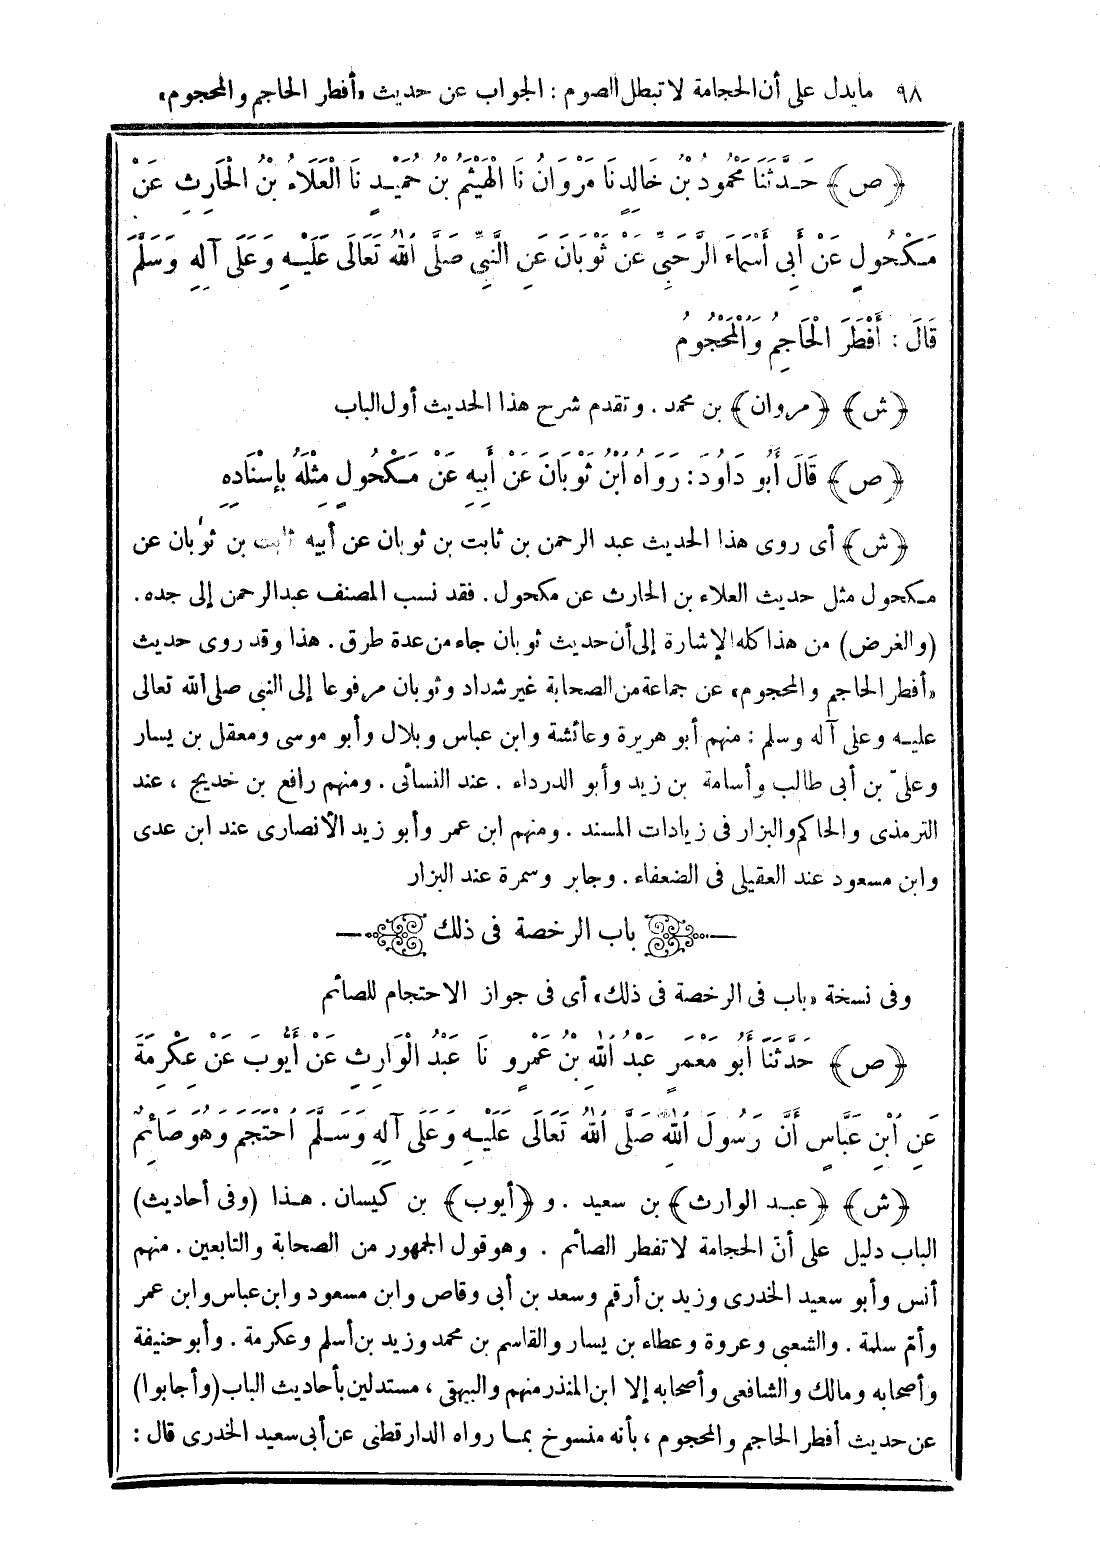 ٩٨ مايدل على أن الحجامة لا تبطل الصوم : الجواب عن حديث «أفطر الحاجم والمحجوم»
﴿ص﴾ حَدَّثَنَا مَحْمُودُ بْنُ خَالِدٍ نَا مَرْوَانُ نَا الْهَيْثَمُ بْنُ حُمَيْدٍ نَا الْعَلَاءُ بْنُ الْحَارِثِ عَنْ
مَكْحُولٍ عَنْ أَبِى أَسْمَاءَ الرَّحَبِىِّ عَنْ ثَوْبَانَ عَنِ النَّبِىِّ صَلَّى اللهُ تَعَالَى عَلَيْهِ وَعَلَى آلِهِ وَسَلَّمَ
قَالَ : أَفْطَرَ الْحَاجِمُ وَالْمَحْجُومُ
﴿ش﴾ ﴿مروان﴾ بن محمد . وتقدم شرح هذا الحديث أول الباب
﴿ص﴾ قَالَ أَبُو دَاوُدَ : رَوَاهُ ابْنُ ثَوْبَانَ عَنْ أَبِيهِ عَنْ مَكْحُولٍ مِثْلَهُ بِإِسْنَادِهِ
﴿ش﴾ أى روى هذا الحديث عبد الرحمن بن ثابت بن ثوبان عن أبيه ثابت بن ثوبان عن
مكحول مثل حديث العلاء بن الحارث عن مكحول . فقد نسب المصنف عبد الرحمن إلى جده .
(والغرض) من هذا كله الإشارة إلى أن حديث ثوبان جاء من عدة طرق . هذا وقد روى حديث
«أفطر الحاجم والمحجوم» عن جماعة من الصحابة غير شداد وثوبان مرفوعا إلى النبى صلى الله تعالى
عليه وعلى آله وسلم : منهم أبو هريرة وعائشة وابن عباس وبلال وأبو موسى ومعقل بن يسار
وعلىّ بن أبى طالب وأسامة بن زيد وأبو الدرداء . عند النسائى . ومنهم رافع بن خديج ، عند
الترمذى والحاكم والبزار فى زيادات المسند . ومنهم ابن عمر وأبو زيد الأنصارى عند ابن عدى
وابن مسعود عند العقيلى فى الضعفاء . وجابر وسمرة عند البزار
باب الرخصة فى ذلك
وفى نسخة «باب فى الرخصة فى ذلك» أى فى جواز الاحتجام للصائم
﴿ص﴾ حَدَّثَنَا أَبُو مَعْمَرٍ عَبْدُ اللهِ بْنُ عَمْرٍو نَا عَبْدُ الْوَارِثِ عَنْ أَيُّوبَ عَنْ عِكْرِمَةَ
عَنِ ابْنِ عَبَّاسٍ أَنَّ رَسُولَ اللهِ صَلَّى اللهُ تَعَالَى عَلَيْهِ وَعَلَى آلِهِ وَسَلَّمَ احْتَجَمَ وَهُوَ صَائِمٌ
﴿ش﴾ ﴿عبد الوارث﴾ بن سعيد . و ﴿أيوب﴾ بن كيسان . هذا (وفى أحاديث)
الباب دليل على أنّ الحجامة لا تفطر الصائم . وهو قول الجمهور من الصحابة والتابعين . منهم
أنس وأبو سعيد الخدرى وزيد بن أرقم وسعد بن أبى وقاص وابن مسعود وابن عباس وابن عمر
وأمّ سلمة . والشعبى وعروة وعطاء بن يسار والقاسم بن محمد وزيد بن أسلم وعكرمة . وأبو حنيفة
وأصحابه ومالك والشافعى وأصحابه إلا ابن المنذر منهم والبيهقى ، مستدلين بأحاديث الباب (وأجابوا)
عن حديث أفطر الحاجم والمحجوم ، بأنه منسوخ بما رواه الدارقطنى عن أبى سعيد الخدرى قال :